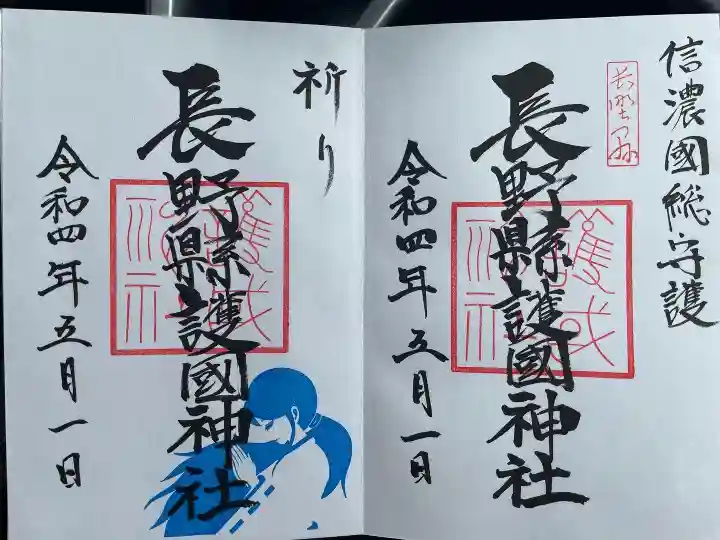 信濃國総守護
長野縣護國神社
令和四年五月一日
祈り
長野縣護國神社
令和四年五月一日